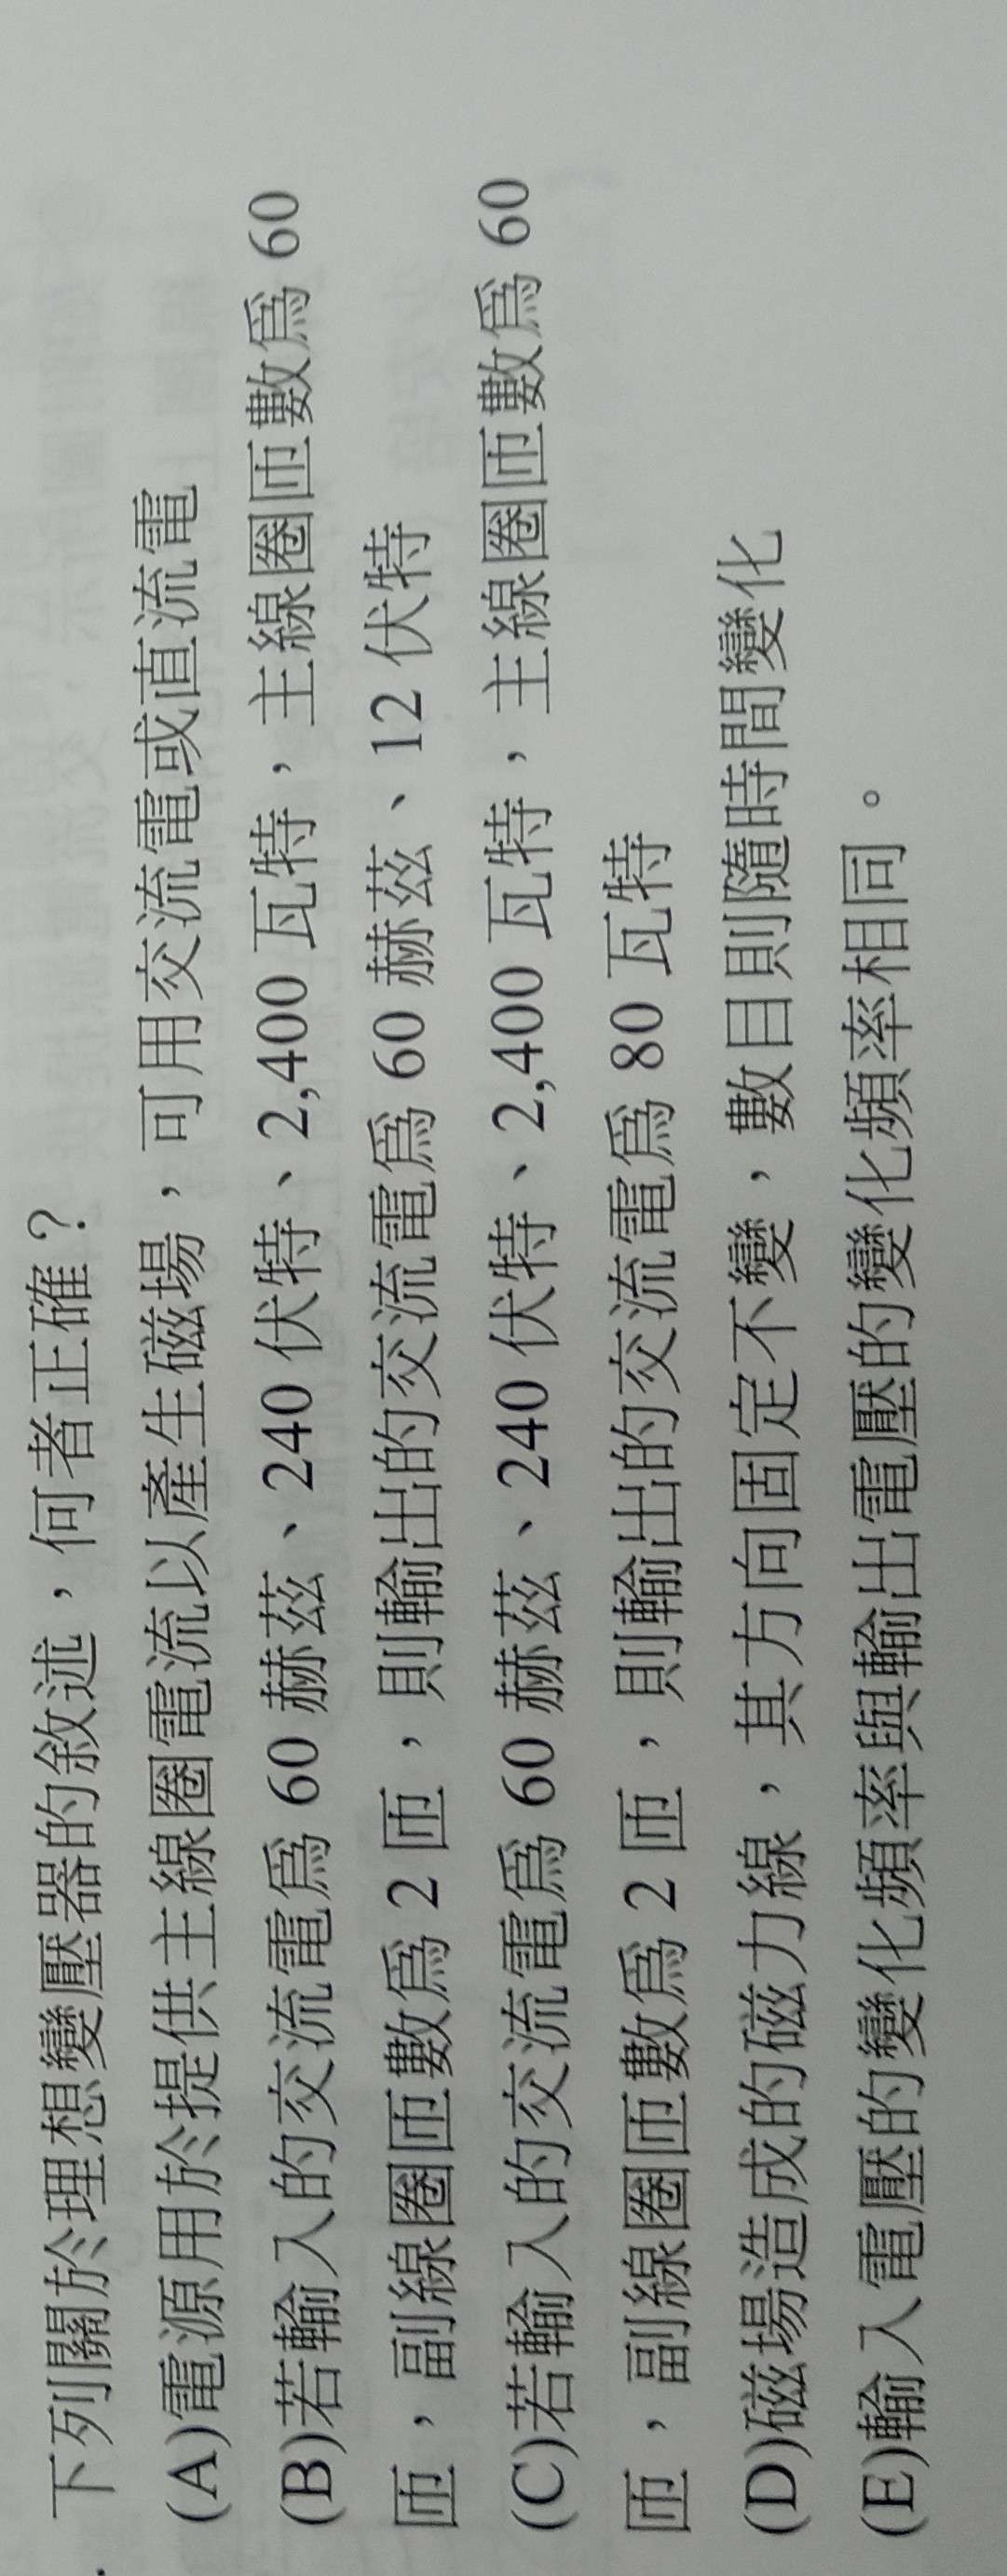 下列關於理想變壓器的敘述，何者正確？
(A)電源用於提供主線圈電流以產生磁場，可用交流電或直流電
(B)若輸入的交流電為 60 赫茲、240 伏特、2,400 瓦特，主線圈匝數為 60
匝，副線圈匝數為 2 匝，則輸出的交流電為 60 赫茲、12 伏特
(C)若輸入的交流電為 60 赫茲、240 伏特、2,400 瓦特，主線圈匝數為 60
匝，副線圈匝數為 2 匝，則輸出的交流電為 80 瓦特
(D)磁場造成的磁力線，其方向固定不變，數目則隨時間變化
(E)輸入電壓的變化頻率與輸出電壓的變化頻率相同。